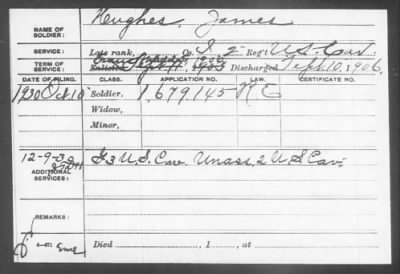 NAME OF SOLDIER: Hughes, James
SERVICE: Late rank, Co. I, 2 Reg't U.S. Cav.
TERM OF SERVICE: Enlisted Discharged Sept. 10, 1906.
DATE OF FILING. CLASS. APPLICATION NO. LAW. CERTIFICATE NO.
1930 Oct 10 Soldier, 1,679,145 N E
Widow,
Minor,
12-9-3
ADDITIONAL SERVICES: G 3 U.S. Cav. Unass. 2 U S Cav.
REMARKS:
Died , 1 , at